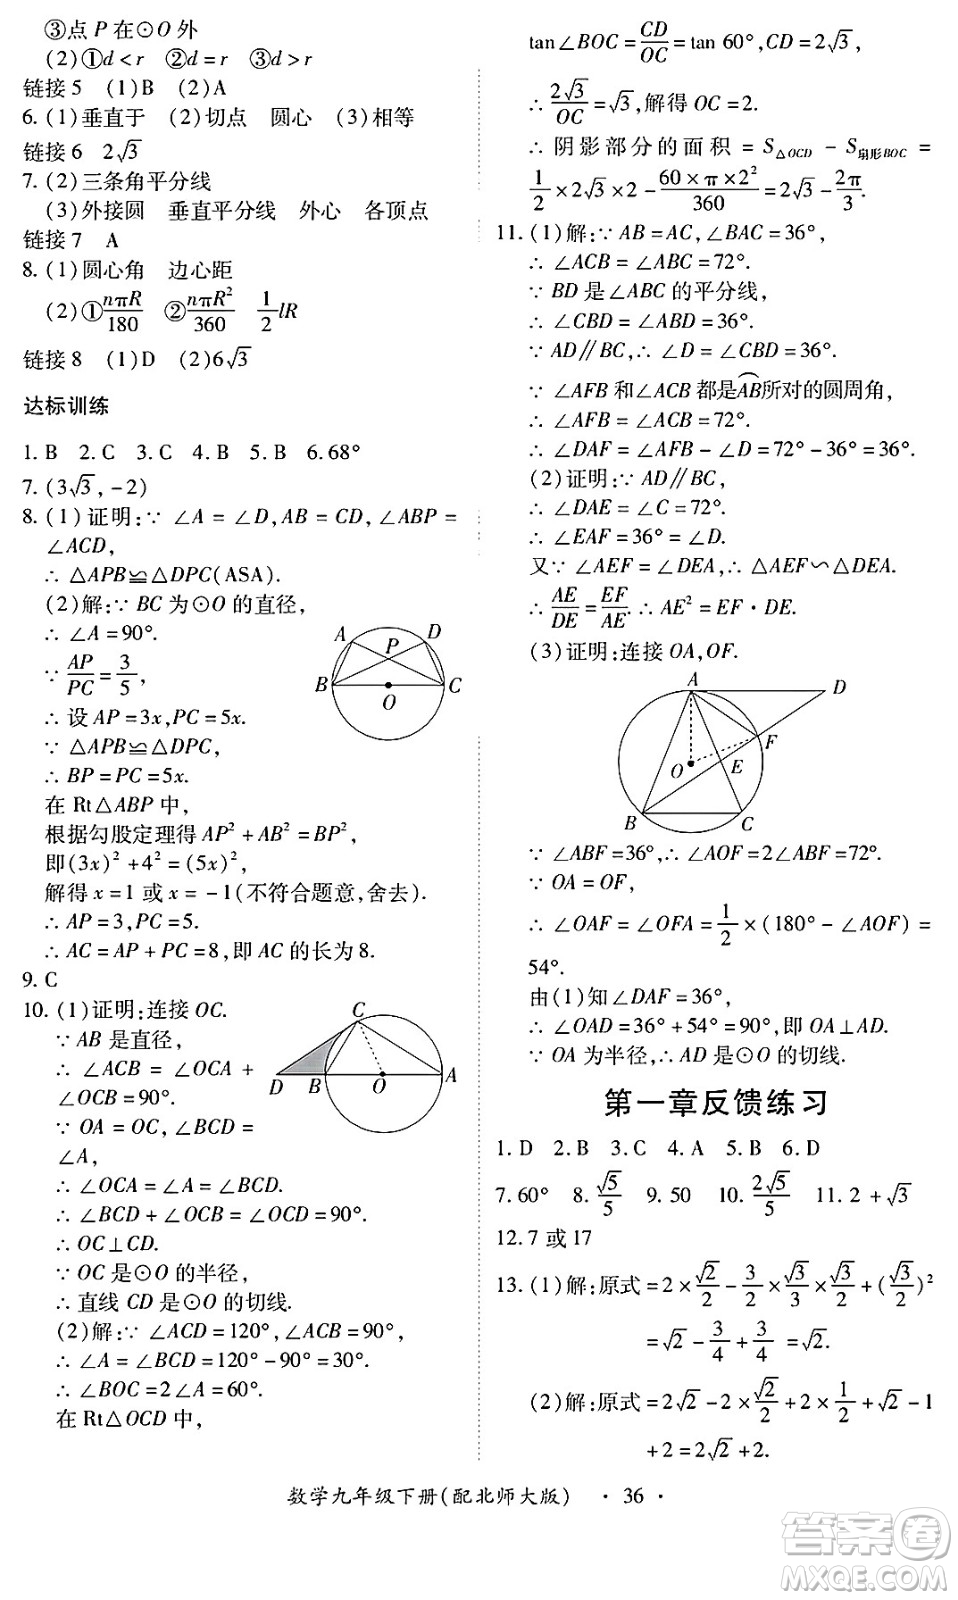 ③点 P 在⊙O 外
(2)①d<r ②d=r ③d>r
链接 5 (1)B (2)A
6. (1)垂直于 (2)切点 圆心 (3)相等
链接 6 2√3
7. (2)三条角平分线
(3)外接圆 垂直平分线 外心 各顶点
链接 7 A
8. (1)圆心角 边心距
(2)①nπR/180 ②nπR²/360 1/2 lR
链接 8 (1)D (2)6√3
达标训练
1. B 2. C 3. C 4. B 5. B 6. 68°
7. (3√3,-2)
8. (1)证明:∵ ∠A=∠D,AB=CD,∠ABP=
∠ACD,
∴ △APB≌△DPC(ASA).
(2)解:∵ BC 为⊙O 的直径,
∴ ∠A=90°.
∵ AP/PC=3/5,
∴ 设 AP=3x,PC=5x.
∵ △APB≌△DPC,
∴ BP=PC=5x.
在 Rt△ABP 中,
根据勾股定理得 AP²+AB²=BP²,
即(3x)²+4²=(5x)²,
解得 x=1 或 x=-1(不符合题意,舍去).
∴ AP=3,PC=5.
∴ AC=AP+PC=8,即 AC 的长为 8.
A D P B O C
9. C
10. (1)证明:连接 OC.
∵ AB 是直径,
∴ ∠ACB=∠ACO+
∠OCB=90°.
∵ OA=OC,∠BCD=
∠A,
∴ ∠OCA=∠A=∠BCD.
∴ ∠BCD+∠OCB=∠OCD=90°.
∴ OC⊥CD.
∵ OC 是⊙O 的半径,
∴ 直线 CD 是⊙O 的切线.
(2)解:∵ ∠ACD=120°,∠ACB=90°,
∴ ∠A=∠BCD=120°-90°=30°.
∴ ∠BOC=2∠A=60°.
在 Rt△OCD 中,
C D B O A
tan∠BOC=CD/OC=tan 60°,CD=2√3,
∴ 2√3/OC=√3,解得 OC=2.
∴ 阴影部分的面积=S△OCD-S扇形BOC=
1/2×2√3×2-60×π×2²/360=2√3-2π/3.
11. (1)解:∵ AB=AC,∠BAC=36°,
∴ ∠ACB=∠ABC=72°.
∵ BD 是∠ABC 的平分线,
∴ ∠CBD=∠ABD=36°.
∵ AD∥BC,∴ ∠D=∠CBD=36°.
∵ ∠AFB 和∠ACB 都是⌒AB所对的圆周角,
∴ ∠AFB=∠ACB=72°.
∴ ∠DAF=∠AFB-∠D=72°-36°=36°.
(2)证明:∵ AD∥BC,
∴ ∠DAE=∠C=72°.
∴ ∠EAF=36°=∠D.
又∵ ∠AEF=∠DEA,∴ △AEF∽△DEA.
∴ AE/DE=EF/AE. ∴ AE²=EF·DE.
(3)证明:连接 OA,OF.
A D F O E B C
∵ ∠ABF=36°,∴ ∠AOF=2∠ABF=72°.
∵ OA=OF,
∴ ∠OAF=∠OFA=1/2×(180°-∠AOF)=
54°.
由(1)知∠DAF=36°,
∴ ∠OAD=36°+54°=90°,即 OA⊥AD.
∵ OA 为半径,∴ AD 是⊙O 的切线.
第一章反馈练习
1. D 2. B 3. C 4. A 5. B 6. D
7. 60° 8. √5/5 9. 50 10. 2√5/5 11. 2+√3
12. 7 或 17
13. (1)解:原式=2×√2/2-3/2×√3/3×√3/2+(√3/2)²
=√2-3/4+3/4=√2.
(2)解:原式=2√2-2×√2/2+2×1/2+√2-1
+2=2√2+2.
数学九年级下册(配北师大版) ·36·
答案圈
MXQE.COM